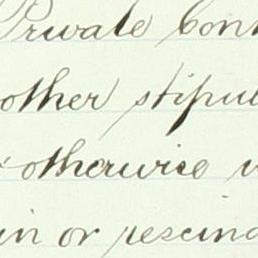 Private Cont
other stipul
otherwise
in or rescind